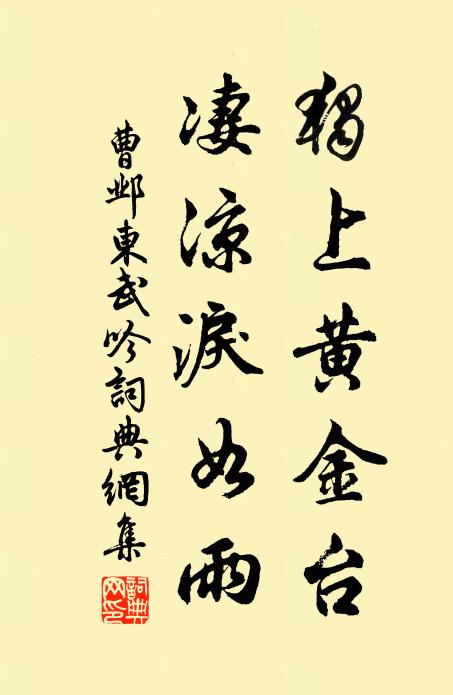 獨上黃金台
凄涼淚如雨
曹邺東武吟詞典網集
詞典网印